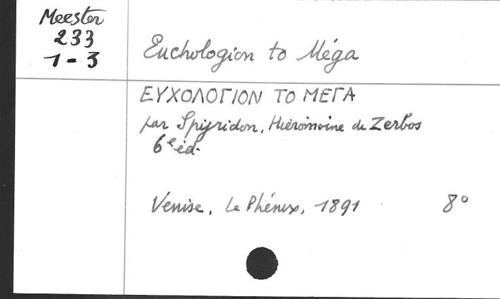 Meester
233
1-3
Euchologion to Méga
ΕΥΧΟΛΟΓΙΟΝ ΤΟ ΜΕΓΑ
par Spyridon, Hiéromoine de Zerbos
6e éd.
Venise, Le Phénix, 1891 8°